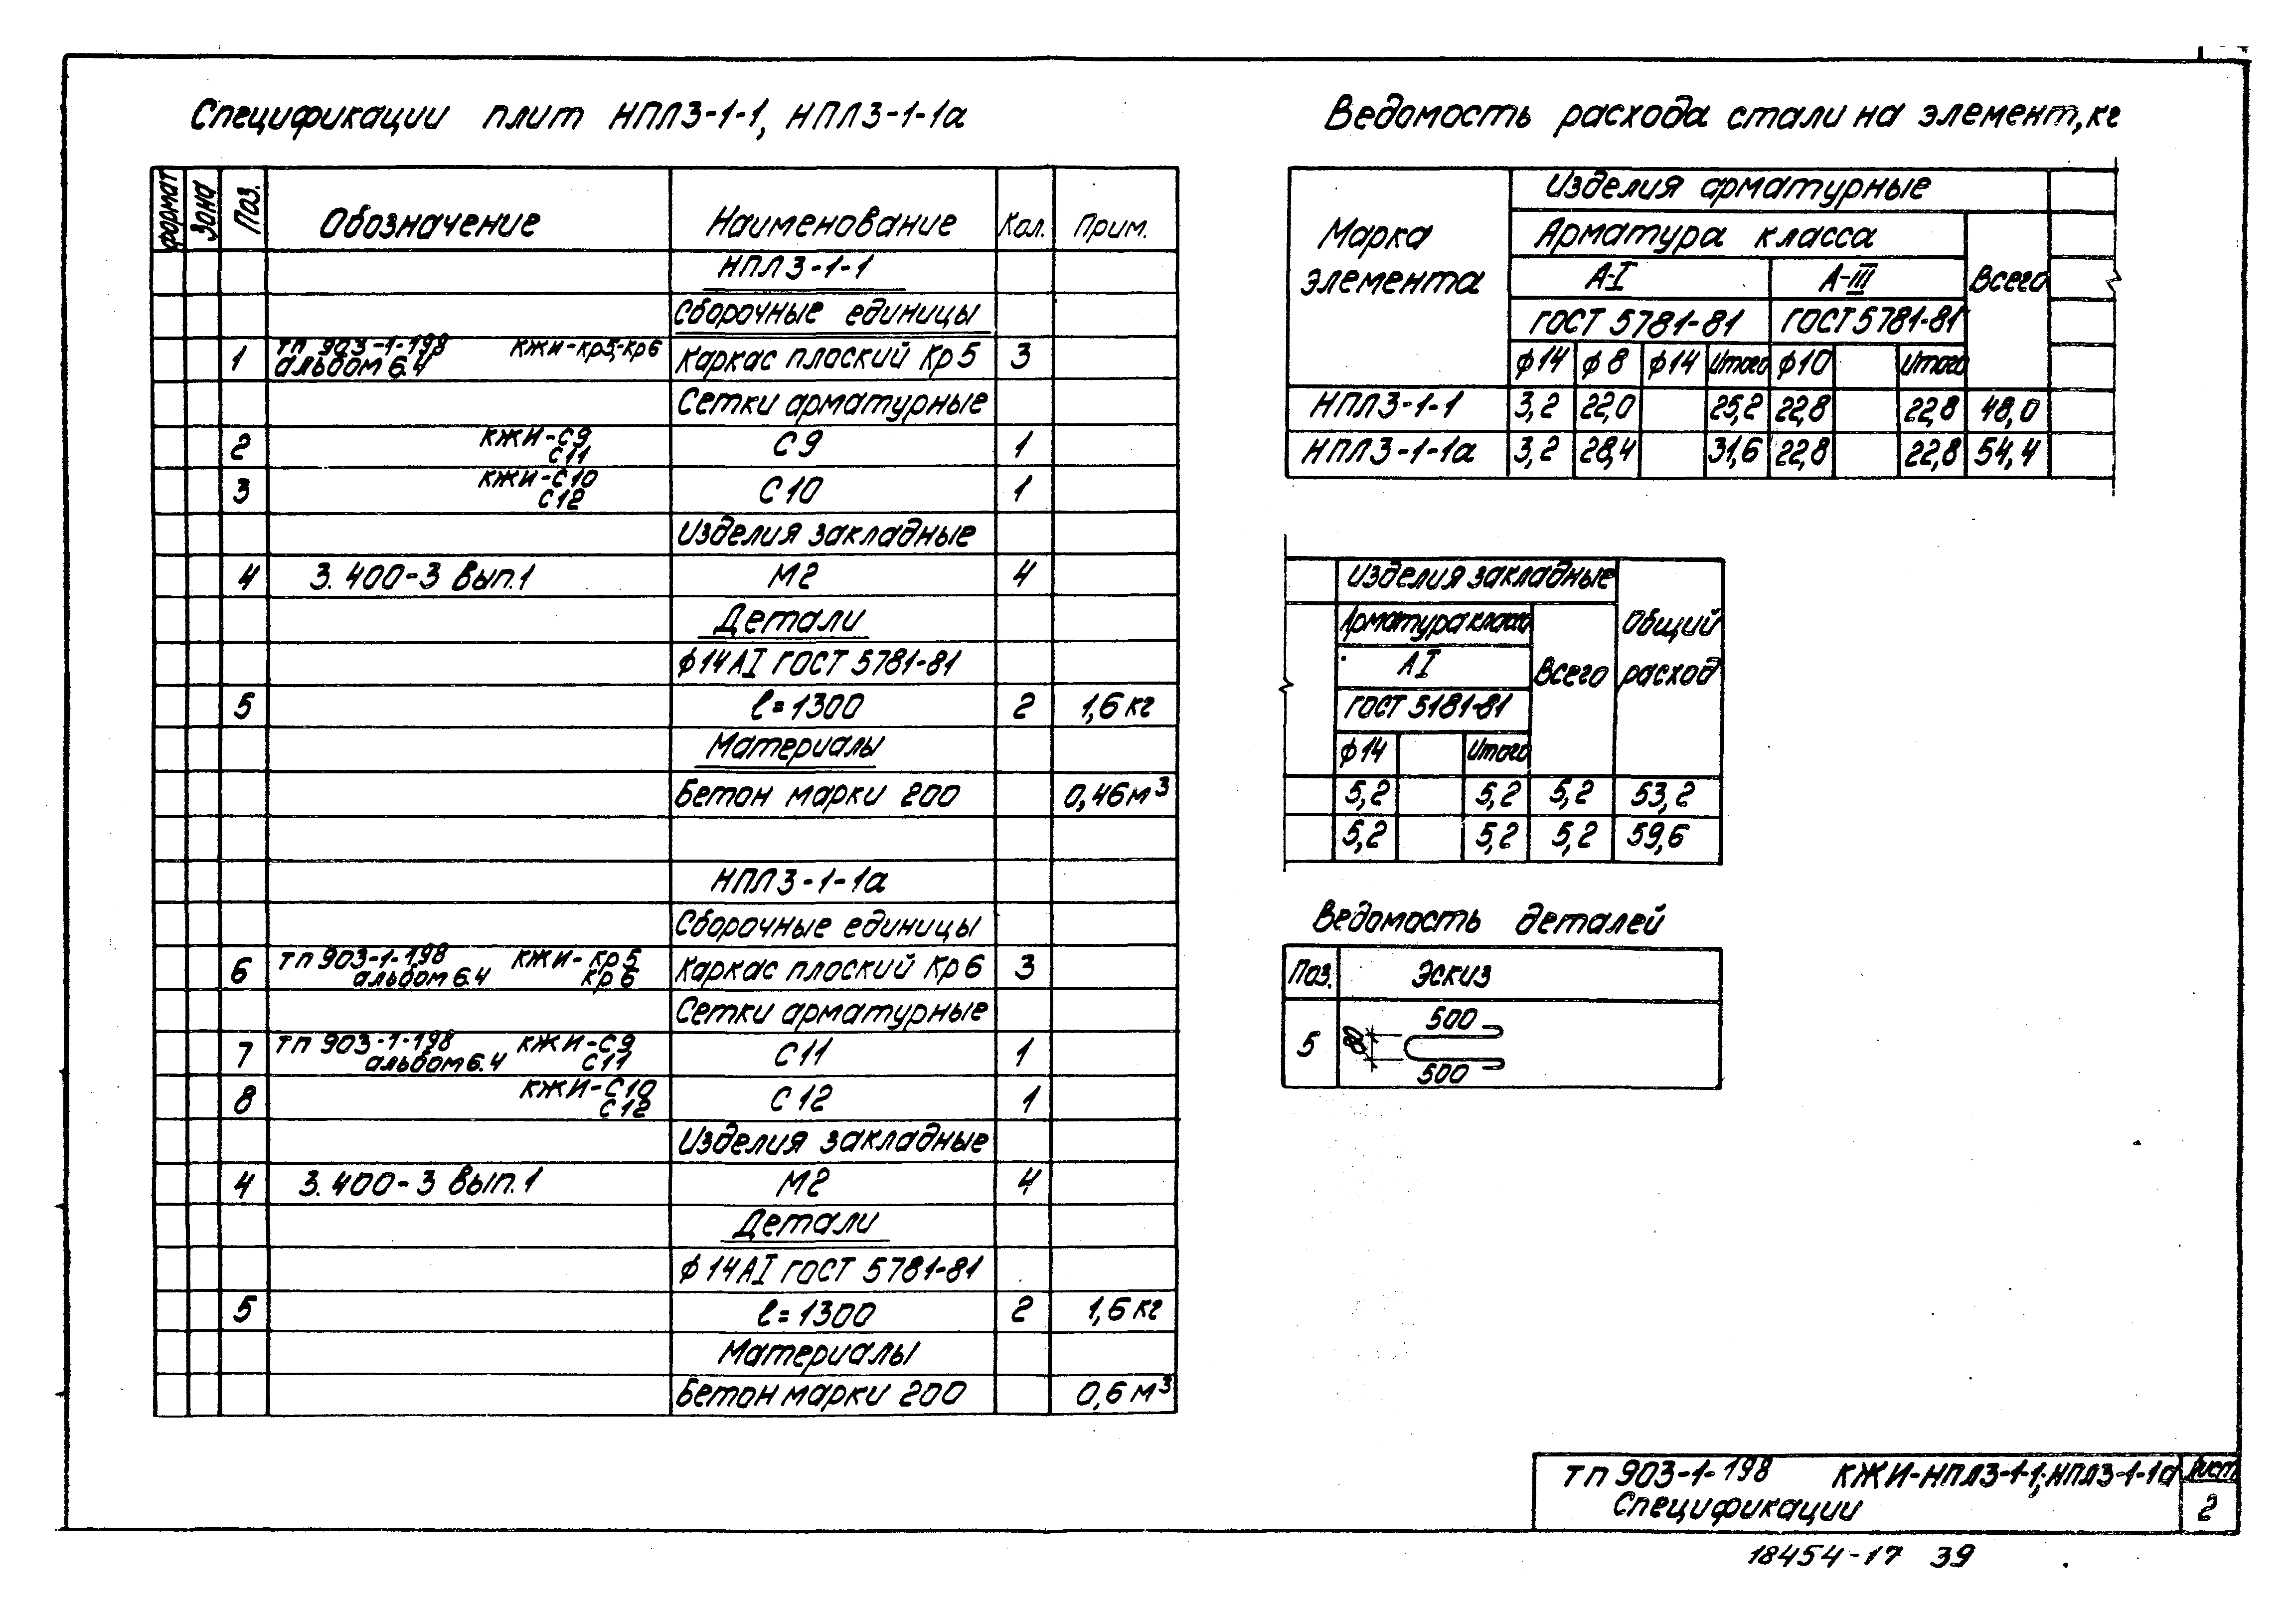 Спецификации плит НПЛ3-1-1, НПЛ3-1-1а
формат Зона Поз. Обозначение Наименование Кол. Прим.
НПЛ3-1-1
Сборочные единицы
1 тп 903-1-198 альбом 6.4 КЖИ-Кр5,-Кр6 Каркас плоский Кр5 3
Сетки арматурные
2 КЖИ-С9, С11 С9 1
3 КЖИ-С10 С12 С10 1
Изделия закладные
4 3.400-3 Вып.1 М2 4
Детали
ф14АI ГОСТ 5781-81
5 ℓ=1300 2 1,6 кг
Материалы
Бетон марки 200 0,46м³
НПЛ3-1-1а
Сборочные единицы
6 тп 903-1-198 альбом 6.4 КЖИ-Кр5 Кр6 Каркас плоский Кр6 3
Сетки арматурные
7 тп 903-1-198 альбом 6.4 КЖИ-С9 С11 С11 1
8 КЖИ-С10 С12 С12 1
Изделия закладные
4 3.400-3 Вып.1 М2 4
Детали
ф14АI ГОСТ 5781-81
5 ℓ=1300 2 1,6 кг
Материалы
Бетон марки 200 0,6 м³
Ведомость расхода стали на элемент, кг
Марка элемента
Изделия арматурные
Арматура класса
Всего
А-I А-III
ГОСТ 5781-81 ГОСТ 5781-81
ф14 ф8 ф14 Итого ф10 Итого
НПЛ3-1-1 3,2 22,0 25,2 22,8 22,8 48,0
НПЛ3-1-1а 3,2 28,4 31,6 22,8 22,8 54,4
Изделия закладные
Арматура класса
Всего
Общий расход
АI
ГОСТ 5181-81
ф14 Итого
5,2 5,2 5,2 53,2
5,2 5,2 5,2 59,6
Ведомость деталей
Поз. Эскиз
5 80 500
500
ТП 903-1-198 КЖИ-НПЛ3-1-1; НПЛ3-1-1а Лист
Спецификации 2
18454-17 39